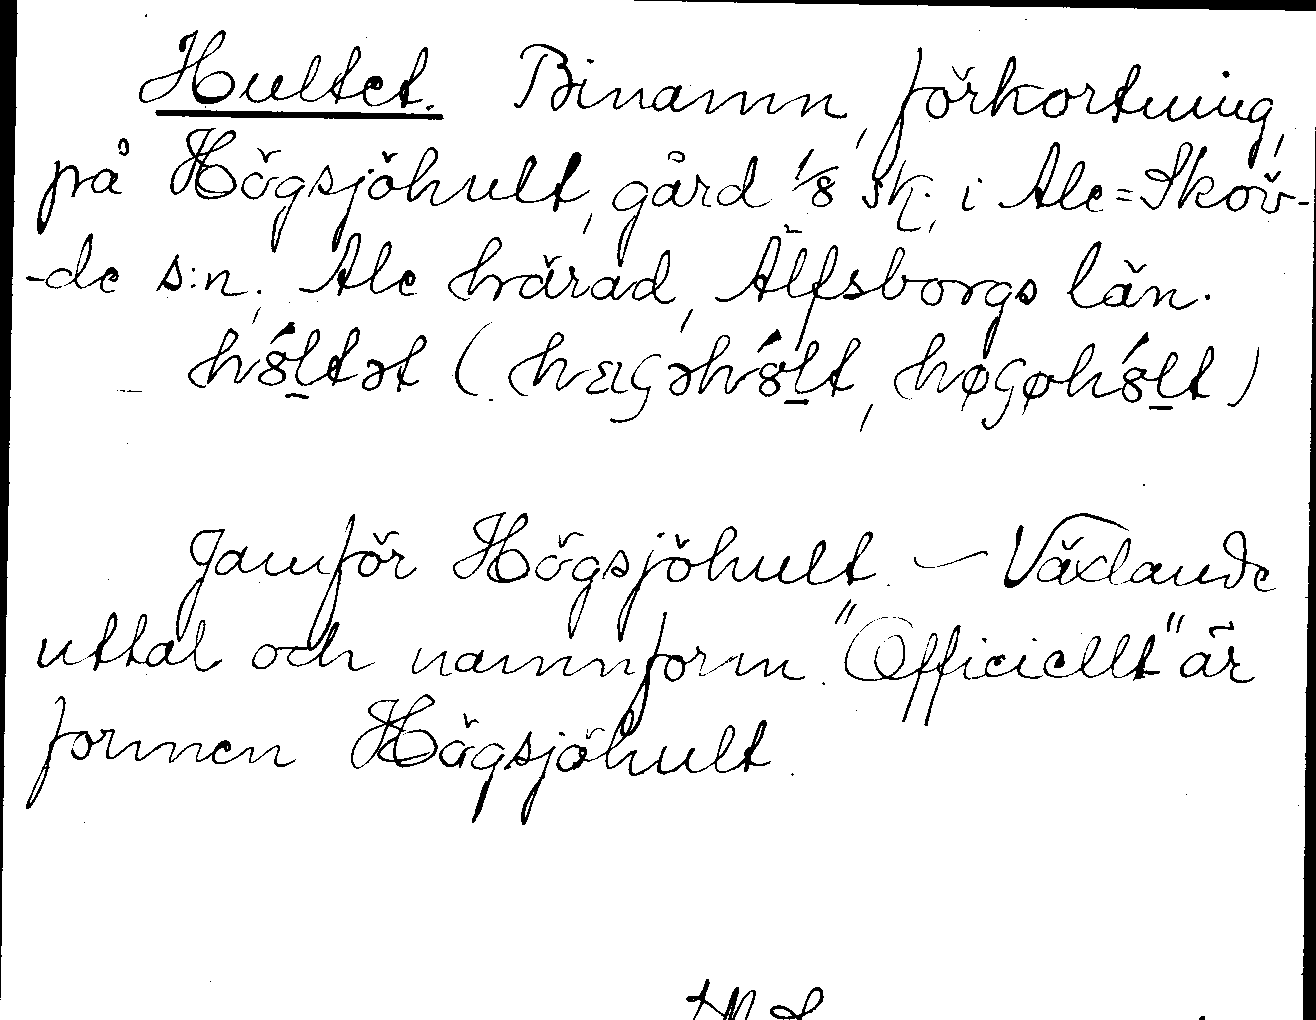 Hultet. Binamn, förkortning,
på Högsjöhult, gård 1/8 sk., i Ale=Sköv-
-de s:n, Ale härad, Älfsborgs län.
Jämför Högsjöhult. — Växlande
uttal och namnform. "Officiellt" är
formen Högsjöhult.